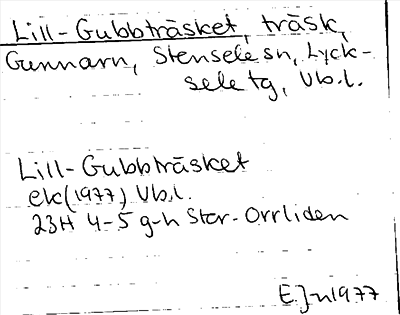 Lill-Gubbträsket, träsk,
Gunnarn, Stensele sn, Lyck-
sele tg, Vb.l.
Lill-Gubbträsket
ek(1977) Vb.l.
23H 4-5 g-h Stor-Orrliden
EJn1977